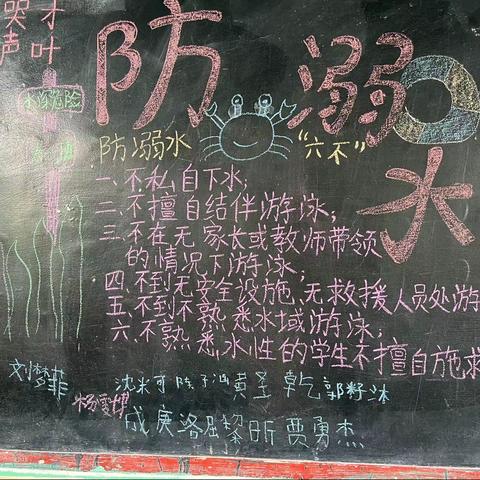 防溺水
水深危险
防溺水"六不"
一、不私自下水;
二、不擅自结伴游泳;
三、不在无家长或教师带领
的情况下游泳;
四、不到无安全设施、无救援人员处游
五、不到不熟悉水域游泳;
六、不熟悉水性的学生不擅自施求
刘梦菲
黄圣乾 郭籽沐
杨雯博
成庚洛 屈黎昕 贾勇杰